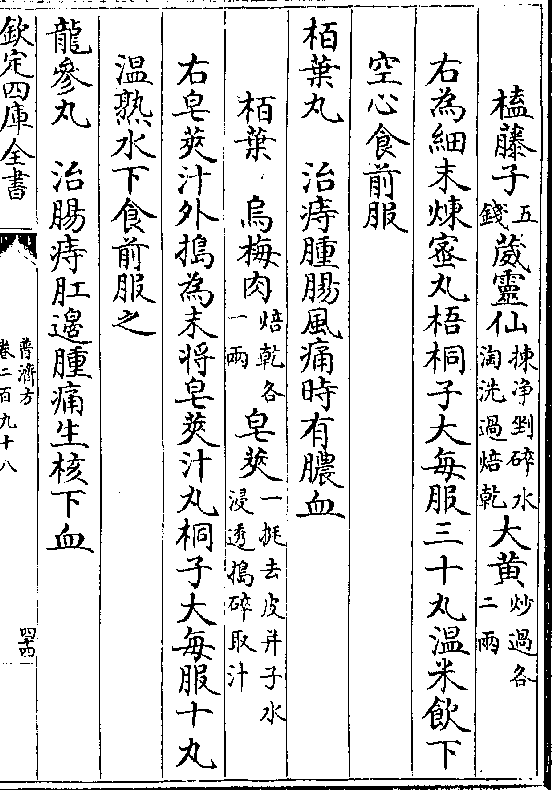 榼藤子五錢葳靈仙揀净剉碎水淘洗過焙乾大黄炒過各二兩
右為細末煉蜜丸梧桐子大每服三十丸温米飲下
空心食前服
栢葉丸　治痔腫腸風痛時有膿血
栢葉烏梅肉焙乾各一兩皂莢一挺去皮并子水浸透搗碎取汁
右皂莢汁外搗為末將皂莢汁丸桐子大每服十丸
温熟水下食前服之
龍參丸　治腸痔肛邊腫痛生核下血
欽定四庫全書
普濟方
卷二百九十八
四十四